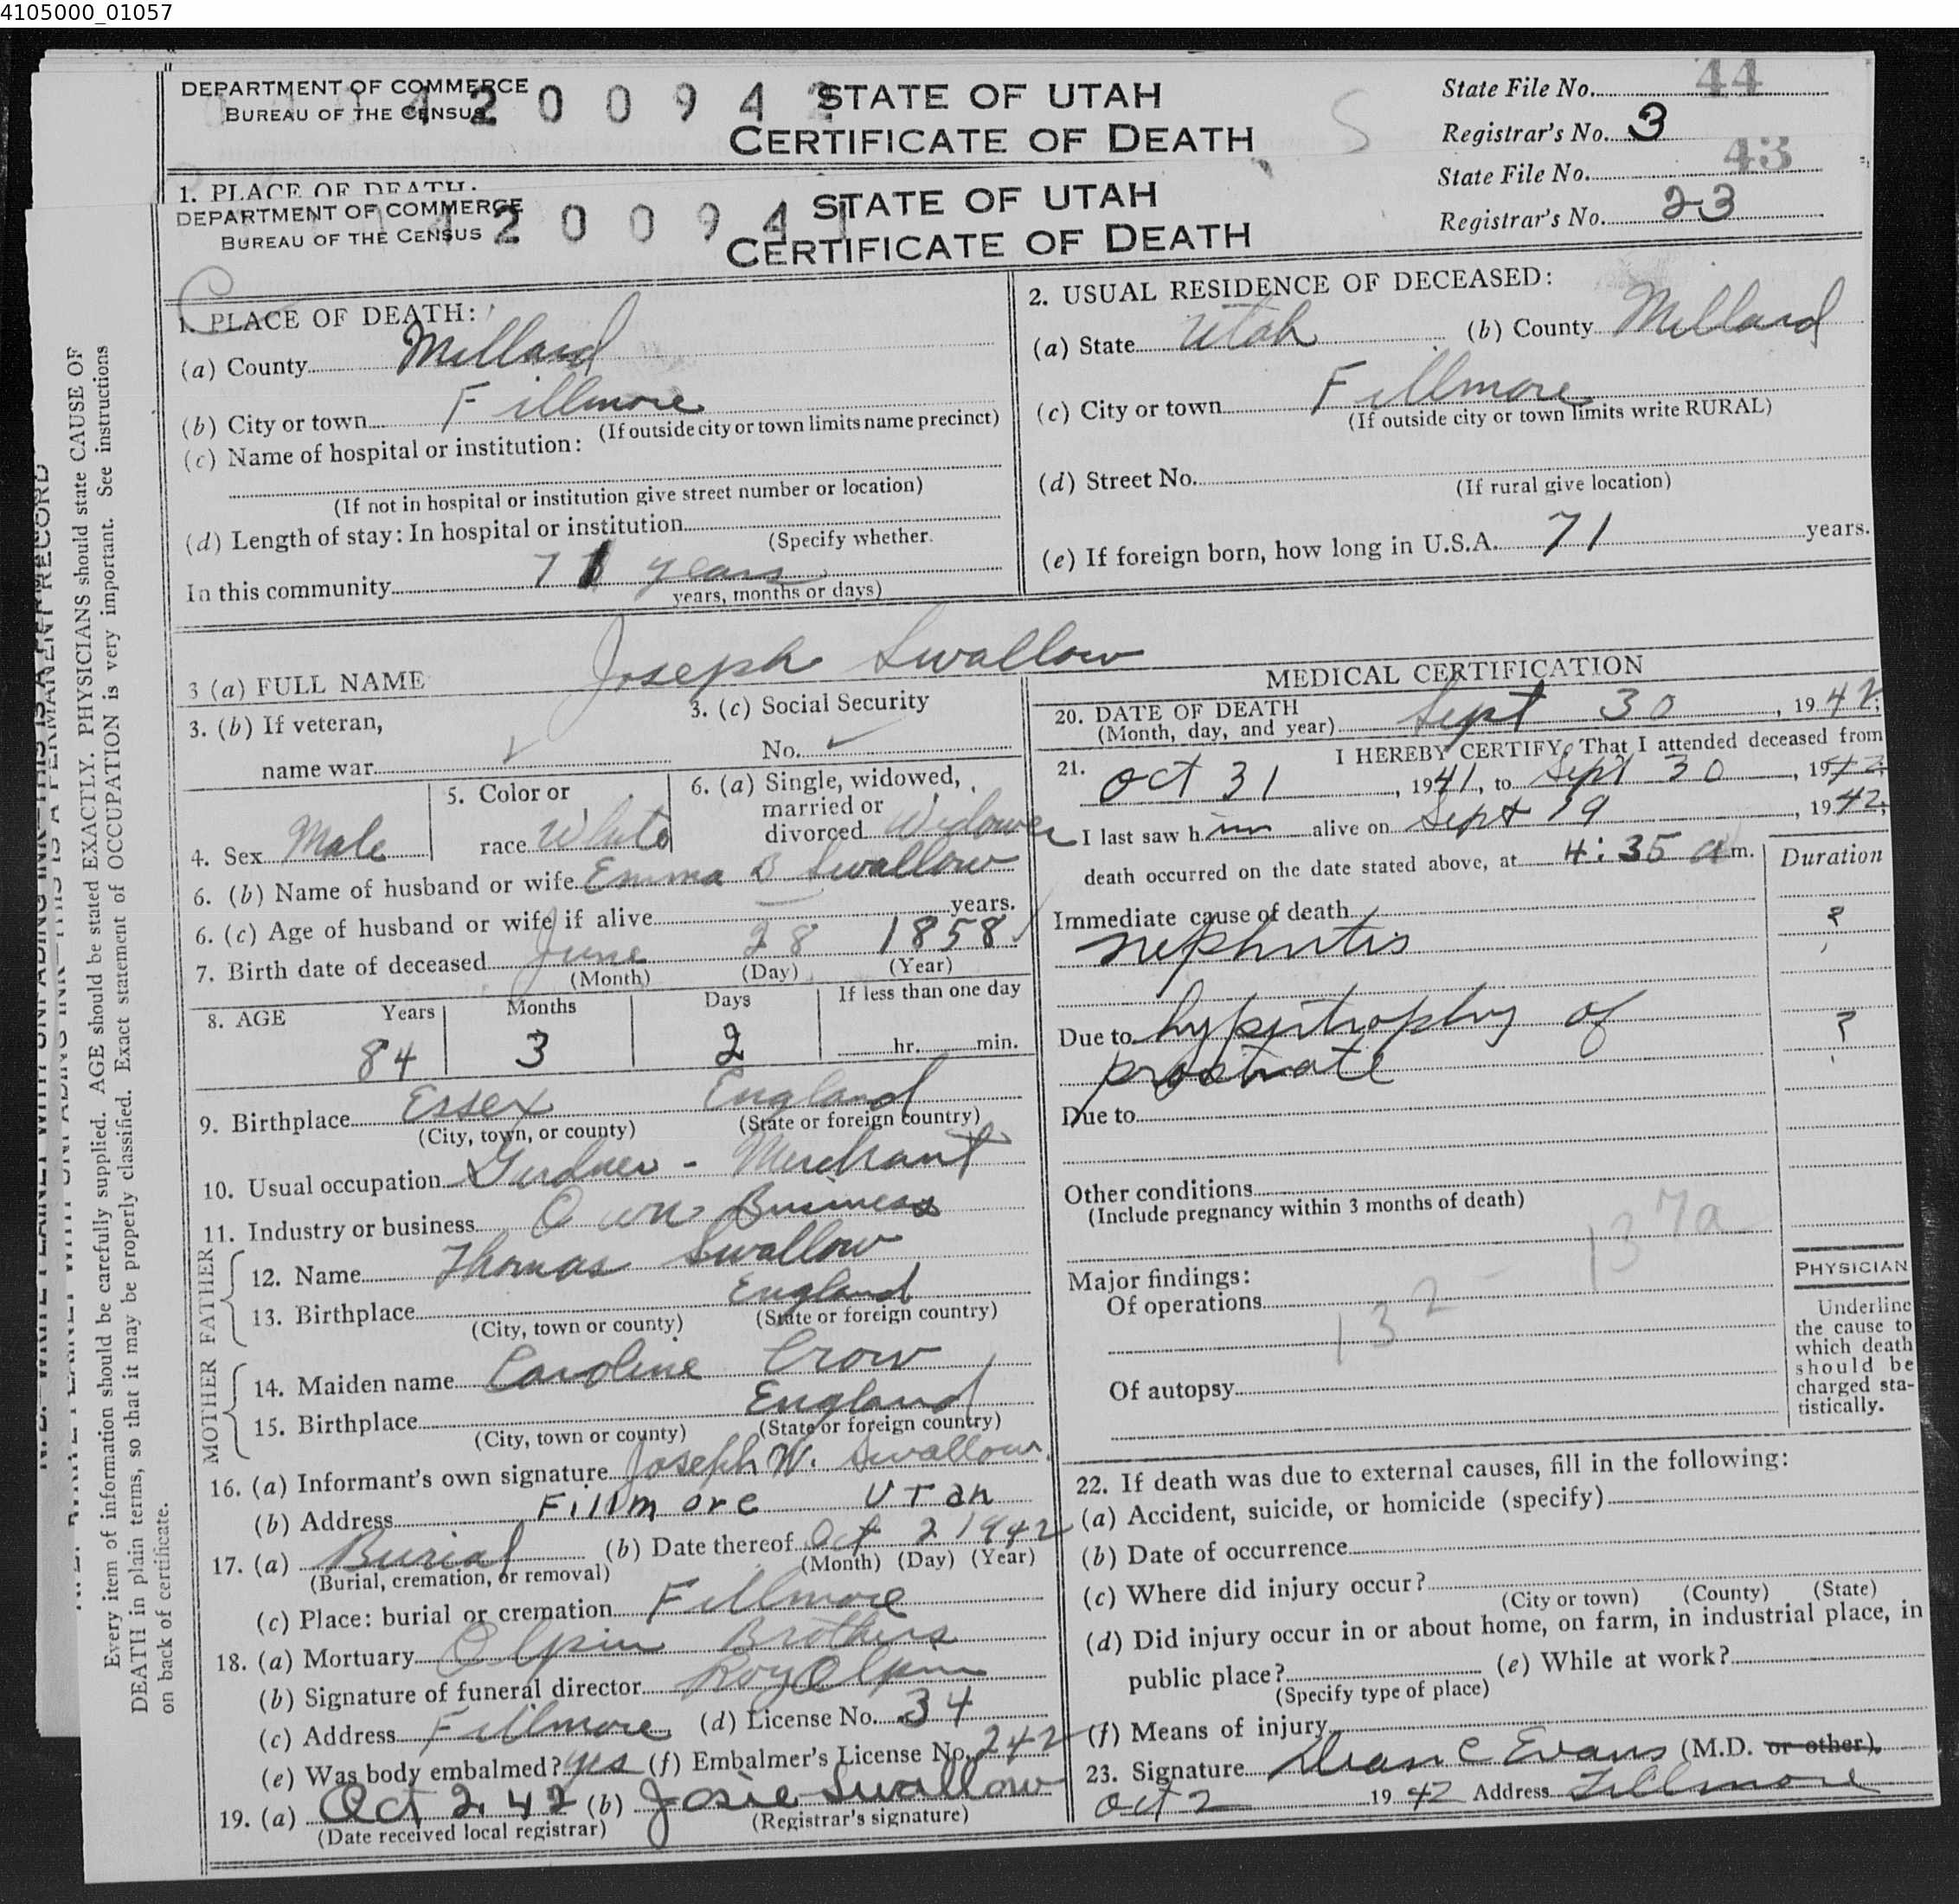 4105000_01057
DEPARTMENT OF COMMERCE
BUREAU OF THE CENSUS
4 2 0 0 9 4 2
STATE OF UTAH
CERTIFICATE OF DEATH
S
State File No. 44
Registrar's No. 3
1. PLACE OF DEATH:
DEPARTMENT OF COMMERCE
BUREAU OF THE CENSUS
4 2 0 0 9 4 1
STATE OF UTAH
CERTIFICATE OF DEATH
State File No. 43
Registrar's No. 23
C
1. PLACE OF DEATH:
(a) County Millard
(b) City or town Fillmore
(If outside city or town limits name precinct)
(c) Name of hospital or institution:
(If not in hospital or institution give street number or location)
(d) Length of stay: In hospital or institution
(Specify whether
In this community 71 years
years, months or days)
2. USUAL RESIDENCE OF DECEASED:
(a) State Utah (b) County Millard
(c) City or town Fillmore
(If outside city or town limits write RURAL)
(d) Street No.
(If rural give location)
(e) If foreign born, how long in U.S.A. 71 years.
3 (a) FULL NAME Joseph Swallow
3. (b) If veteran,
name war
3. (c) Social Security
No.
4. Sex Male
5. Color or
race White
6. (a) Single, widowed,
married or
divorced Widower
6. (b) Name of husband or wife Emma B Swallow
6. (c) Age of husband or wife if alive years.
7. Birth date of deceased June 28 1858
(Month) (Day) (Year)
8. AGE Years Months Days If less than one day
84 3 2 hr. min.
9. Birthplace Essex England
(City, town, or county) (State or foreign country)
10. Usual occupation Gardner - Merchant
11. Industry or business Own Business
FATHER
12. Name Thomas Swallow
13. Birthplace England
(City, town or county) (State or foreign country)
MOTHER
14. Maiden name Caroline Crow
15. Birthplace England
(City, town or county) (State or foreign country)
16. (a) Informant's own signature Joseph W. Swallow
(b) Address Fillmore Utah
17. (a) Burial (b) Date thereof Oct 2 1942
(Burial, cremation, or removal) (Month) (Day) (Year)
(c) Place: burial or cremation Fillmore
18. (a) Mortuary Olpin Brothers
(b) Signature of funeral director Roy Olpin
(c) Address Fillmore (d) License No. 34
(e) Was body embalmed? yes (f) Embalmer's License No. 242
19. (a) Oct 2, 42 (b) Josie Swallow
(Date received local registrar) (Registrar's signature)
MEDICAL CERTIFICATION
20. DATE OF DEATH
(Month, day, and year) Sept 30, 1942;
21. I HEREBY CERTIFY, That I attended deceased from
Oct 31, 1941, to Sept 30, 1942
I last saw him alive on Sept 19, 1942;
death occurred on the date stated above, at 4:35 a m.
Duration
Immediate cause of death ?
nephritis
Due to hypertrophy of ?
prostrate
Due to
Other conditions
(Include pregnancy within 3 months of death)
137a
Major findings:
Of operations
132 -
Of autopsy
PHYSICIAN
Underline
the cause to
which death
should be
charged sta-
tistically.
22. If death was due to external causes, fill in the following:
(a) Accident, suicide, or homicide (specify)
(b) Date of occurrence
(c) Where did injury occur?
(City or town) (County) (State)
(d) Did injury occur in or about home, on farm, in industrial place, in
public place? (e) While at work?
(Specify type of place)
(f) Means of injury
23. Signature Dean C Evans (M.D. or other)
Oct 2 1942 Address Fillmore
Every item of information should be carefully supplied. AGE should be stated EXACTLY. PHYSICIANS should state CAUSE OF
DEATH in plain terms, so that it may be properly classified. Exact statement of OCCUPATION is very important. See instructions
on back of certificate.